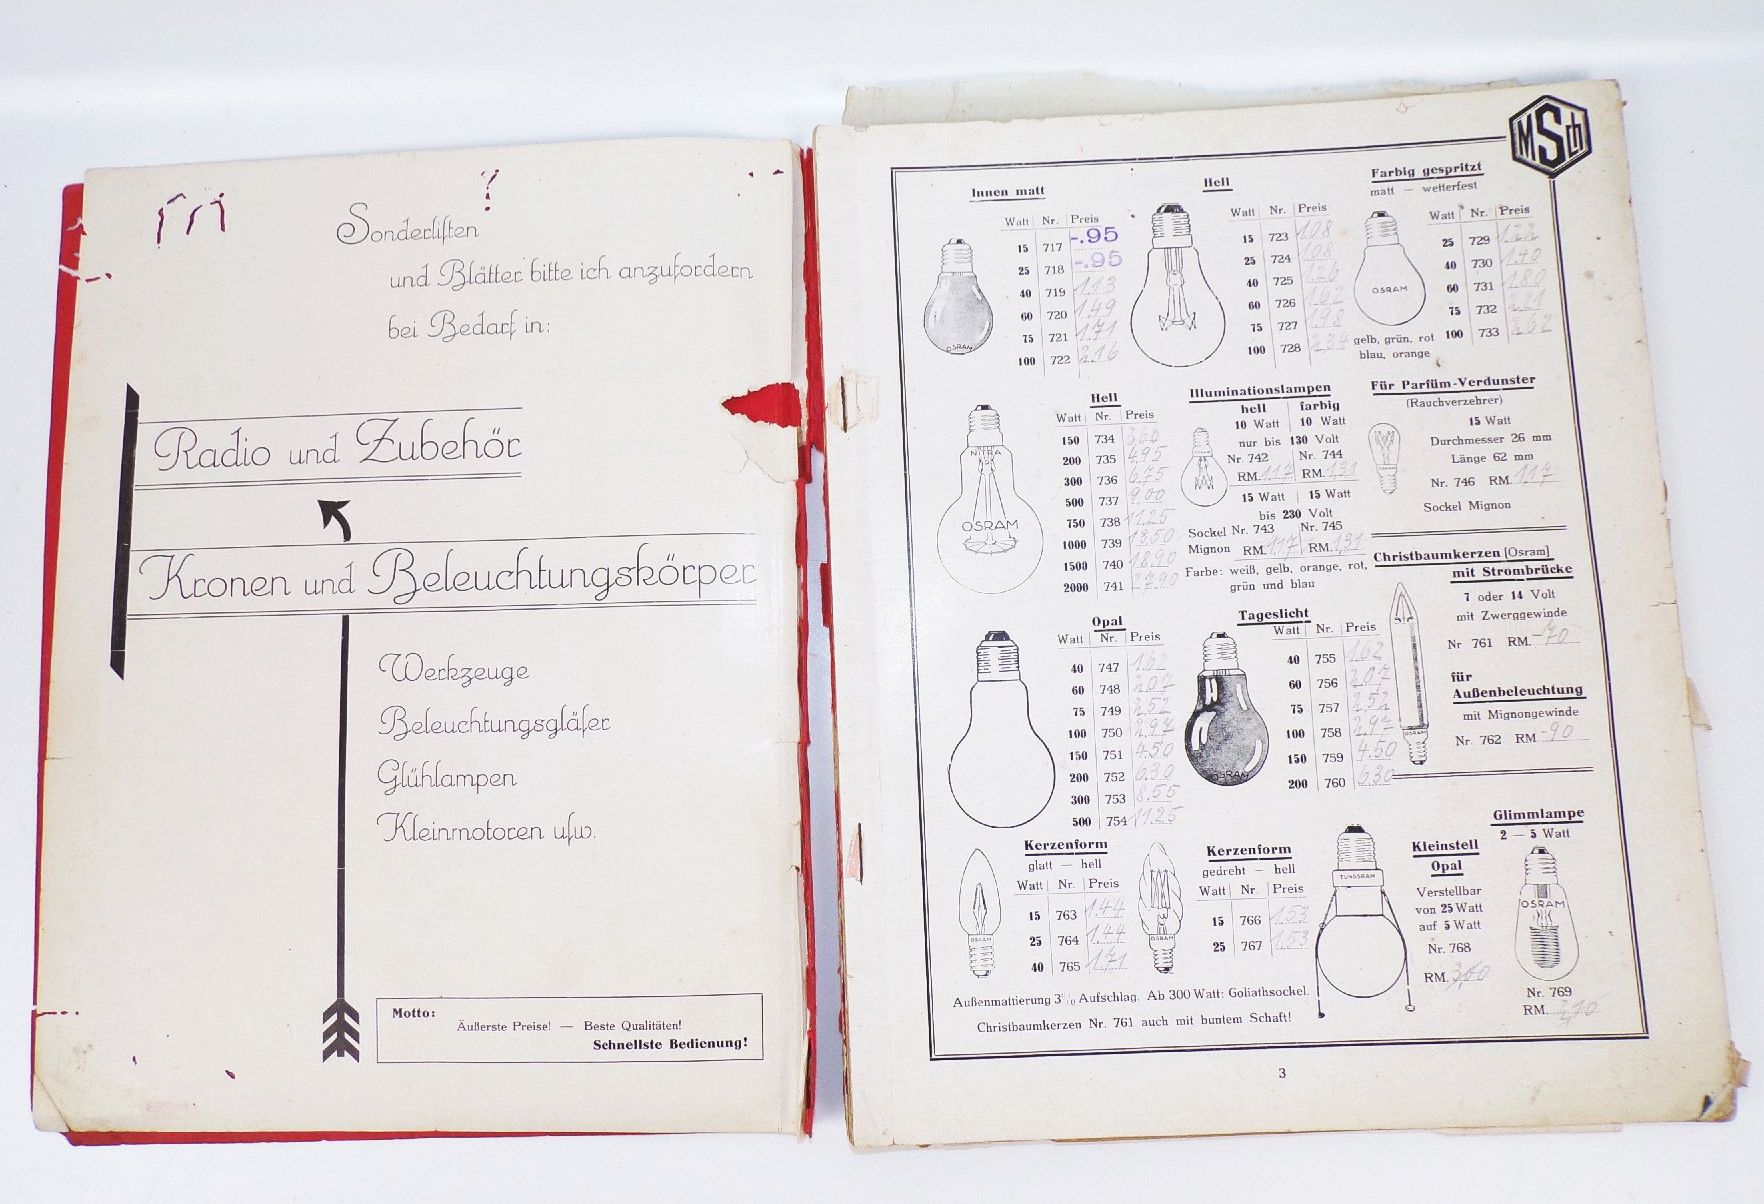 Sonderlisten
und Blätter bitte ich anzufordern
bei Bedarf in:
Radio und Zubehör
Kronen und Beleuchtungskörper
Werkzeuge
Beleuchtungsgläser
Glühlampen
Kleinmotoren usw.
Motto:
Äußerste Preise! — Beste Qualitäten!
Schnellste Bedienung!
MSch
Innen matt
Watt Nr. Preis
15 717 -.95
25 718 -.95
40 719 1.13
60 720 1.49
75 721 1.71
100 722 2.16
OSRAM
Hell
Watt Nr. Preis
15 723 1.08
25 724 1.08
40 725 1.26
60 726 1.62
75 727 1.98
100 728 2.34
Farbig gespritzt
matt — wetterfest
OSRAM
Watt Nr. Preis
25 729 1.22
40 730 1.40
60 731 1.80
75 732 2.21
100 733 2.62
gelb, grün, rot
blau, orange
Hell
Watt Nr. Preis
150 734 3.60
200 735 4.95
300 736 6.75
500 737 9.00
750 738 11.25
1000 739 13.50
1500 740 18.90
2000 741 27.90
NITRA
OSRAM
Illuminationslampen
hell farbig
10 Watt 10 Watt
nur bis 130 Volt
Nr. 742 Nr. 744
RM. 1.17 RM. 1.31
15 Watt 15 Watt
bis 230 Volt
Sockel Nr. 743 Nr. 745
Mignon RM. 1.17 RM. 1.31
Farbe: weiß, gelb, orange, rot,
grün und blau
Für Parfüm-Verdunster
(Rauchverzehrer)
15 Watt
Durchmesser 26 mm
Länge 62 mm
Nr. 746 RM. 1.17
Sockel Mignon
Christbaumkerzen [Osram]
mit Strombrücke
7 oder 14 Volt
mit Zwerggewinde
Nr 761 RM. -70
für
Außenbeleuchtung
mit Mignongewinde
Nr. 762 RM -90
OSRAM
Opal
Watt Nr. Preis
40 747 1.62
60 748 2.07
75 749 2.52
100 750 2.97
150 751 4.50
200 752 6.30
300 753 8.55
500 754 11.25
Tageslicht
Watt Nr. Preis
40 755 1.62
60 756 2.07
75 757 2.52
100 758 2.97
150 759 4.50
200 760 6.30
OSRAM
Kerzenform
glatt — hell
Watt Nr. Preis
15 763 1.44
25 764 1.44
40 765 1.71
OSRAM
Kerzenform
gedreht — hell
Watt Nr. Preis
15 766 1.53
25 767 1.53
OSRAM
TUNGSRAM
Kleinstell
Opal
Verstellbar
von 25 Watt
auf 5 Watt
Nr. 768
RM. 3,60
Glimmlampe
2 — 5 Watt
OSRAM
Nr. 769
RM.
Außenmattierung 3% Aufschlag. Ab 300 Watt: Goliathsockel.
Christbaumkerzen Nr. 761 auch mit buntem Schaft!
3